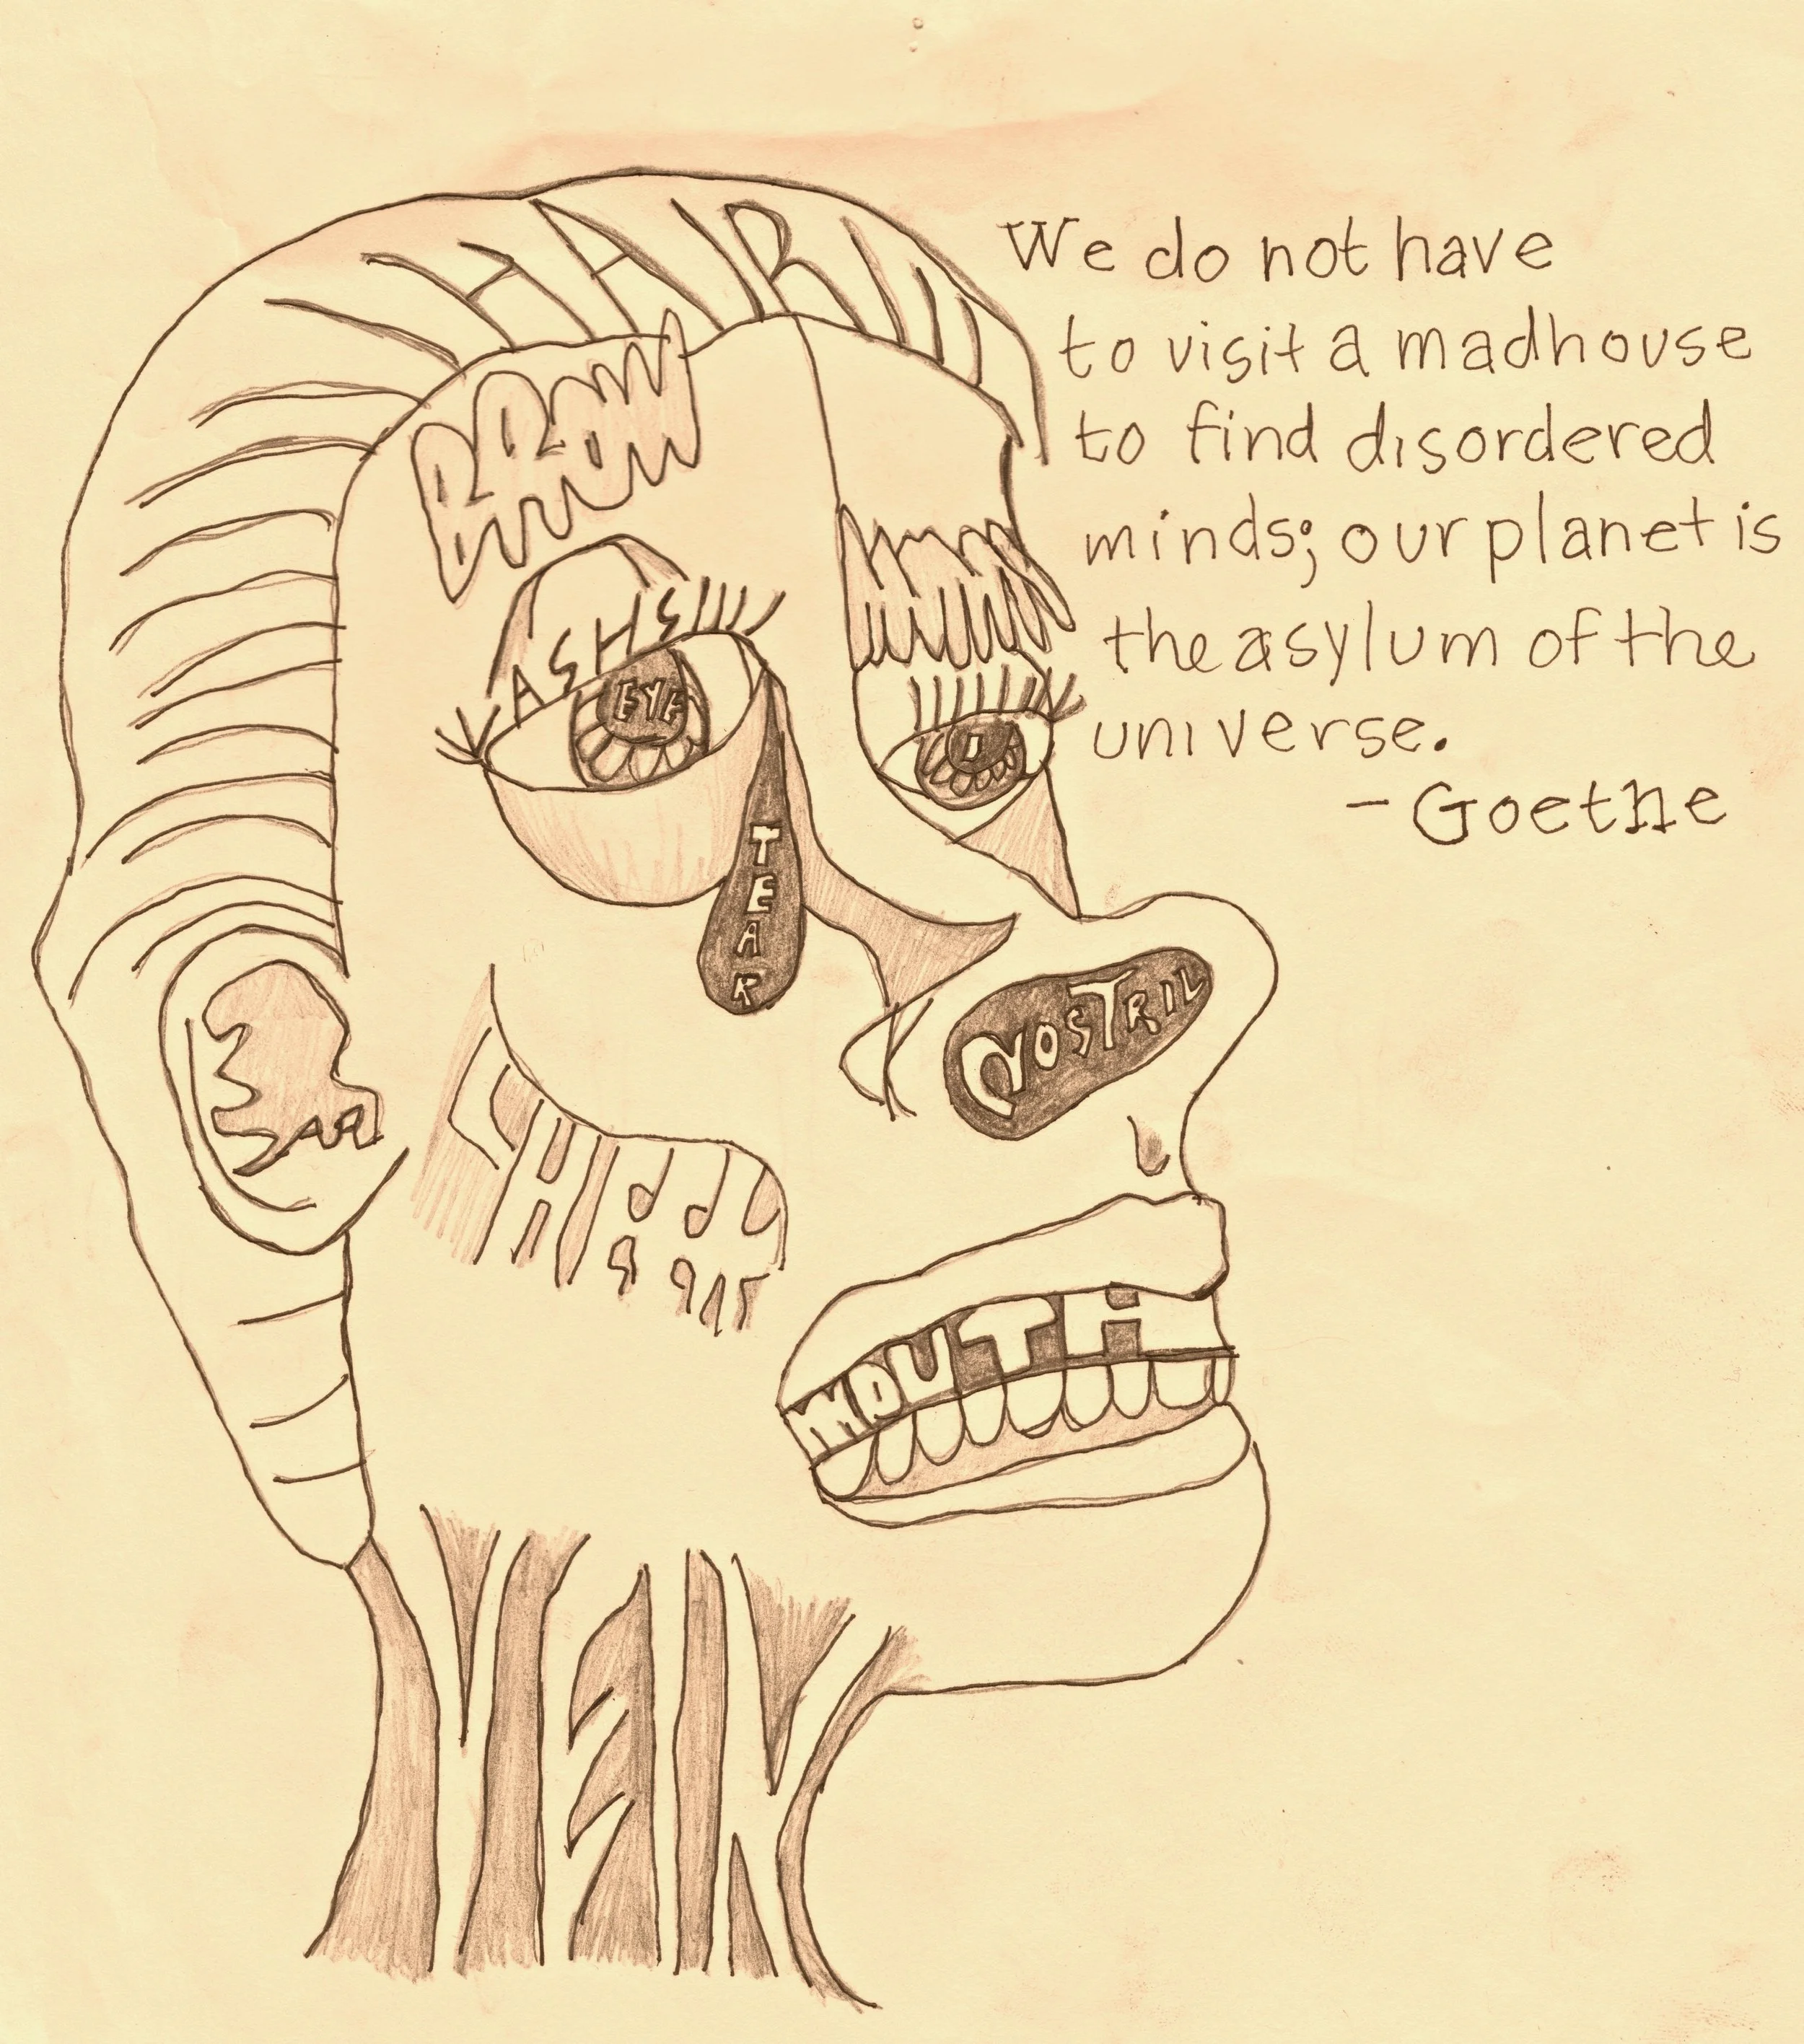 HAIR
We do not have
to visit a madhouse
to find disordered
minds; our planet is
the asylum of the
universe.
- Goethe
BROW
EYE
TEAR
NOSTRIL
EAR
CHEEK
MOUTH